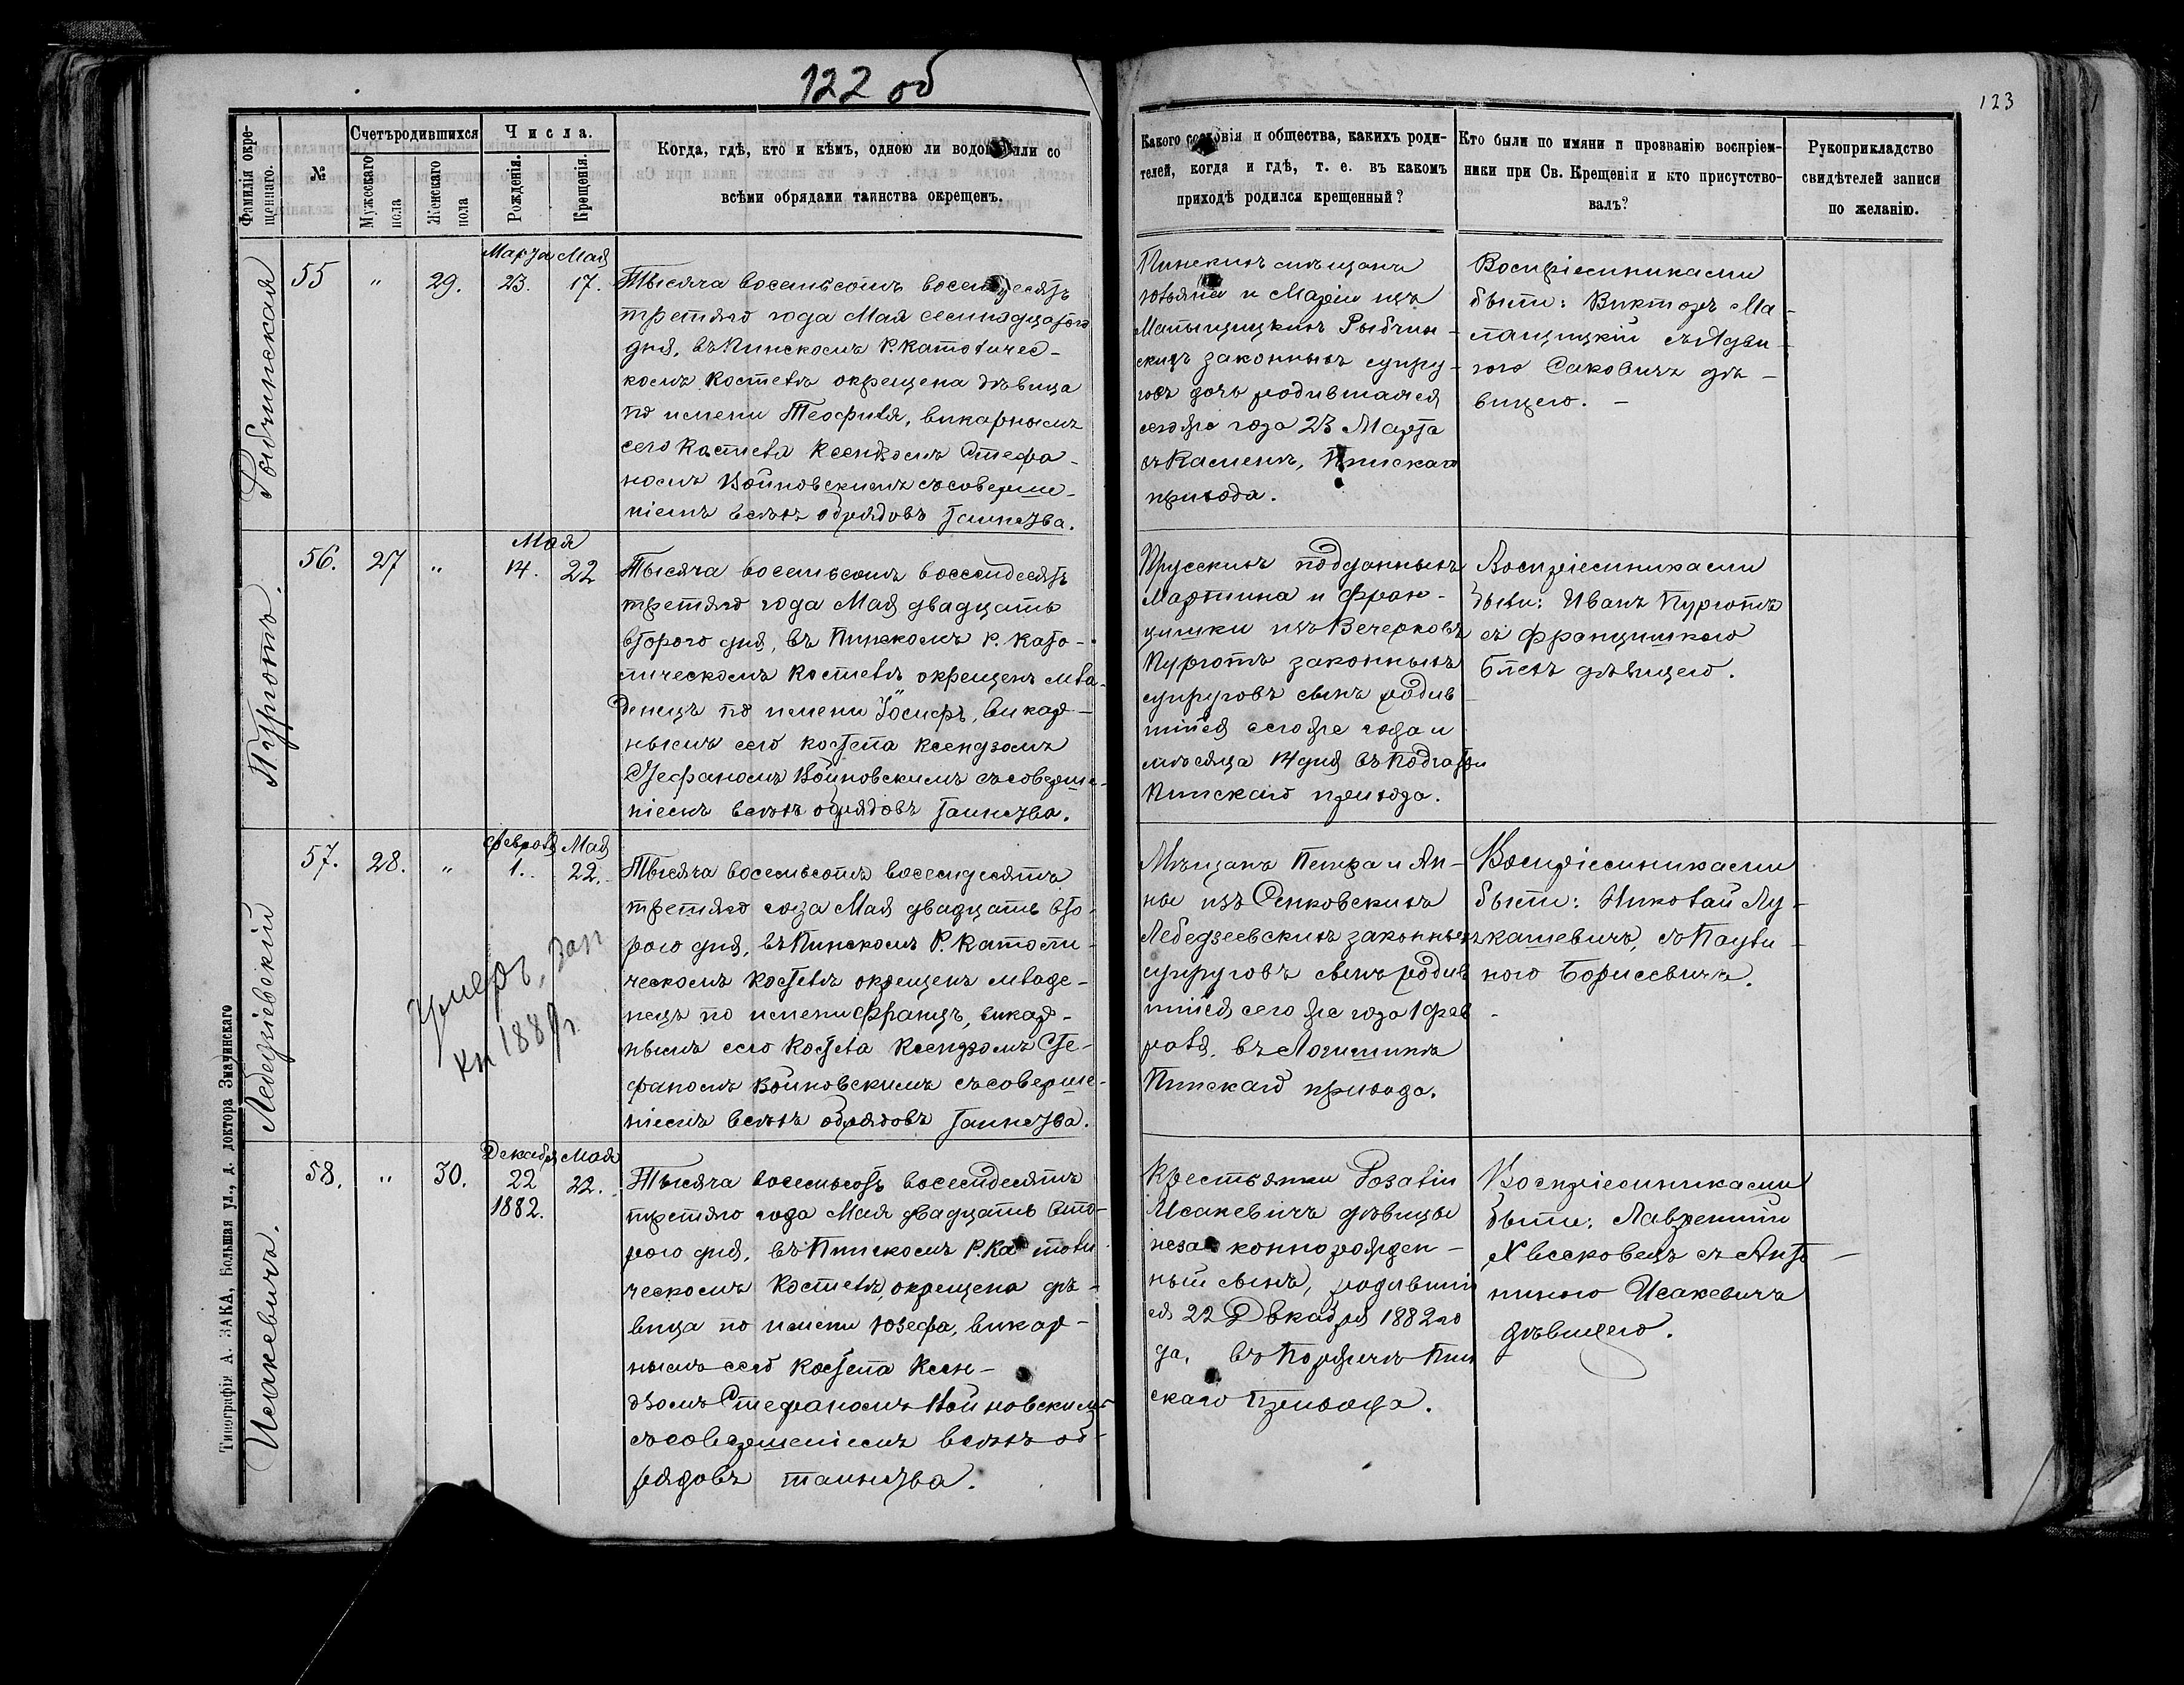 122 об
123
Фамилія окре-
щеннаго.
№
Счетъ родившихся
Мужескаго
пола
Женскаго
пола
Числа.
Рожденія.
Крещенія.
Когда, гдѣ, кто и кѣмъ, одною ли водою или со
всѣми обрядами таинства окрещенъ.
Какого сословія и общества, какихъ роди-
телей, когда и гдѣ, т. е. въ какомъ
приходѣ родился крещенный?
Кто были по имяни и прозванію воспріем-
ники при Св. Крещенія и кто присутство-
валъ?
Рукоприкладство
свидѣтелей записи
по желанію.
Рыбчинская
55
"
29.
Марта
23.
Мая
17.
Тысяча восемьсотъ восемдесятъ
третяго года Мая семнадцатого
дня, въ Пинскомъ Р. Католичес-
комъ Костелѣ окрещена дѣвица
по имени Теофиля, викарнымъ
сего Костела Ксендзомъ Стефа-
номъ Войновскимъ съ соверше-
ніемъ всѣхъ обрядовъ таинства.
Пинскихъ мѣщанъ
Юльяна и Маріи изъ
Рыбчин-
скихъ законныхъ супру-
говъ дочь родившаяся
сего же года 23 Марта
въ Камени, Пинскаго
прихода.
Воспріемниками
были: Викторъ Ма-
лащицкій съ Ядви-
гою Саковичъ дѣ-
вицею. -
Пурготъ.
56.
27
"
Мая
14.
22
Тысяча восемьсотъ восемдесятъ
третяго года Мая двадцать
второго дня, въ Пинскомъ Р. Като-
лическомъ Костелѣ окрещенъ мла-
денецъ по имени Іосифъ, викар-
нымъ сего костела Ксендзомъ
Стефаномъ Войновскимъ съ соверше-
ніемъ всѣхъ обрядовъ таинства.
Прусскихъ подданныхъ
Мартина и Фран-
цишки изъ Вечерковъ
Пурготъ законныхъ
супруговъ сынъ родив-
шійся сего же года и
мѣсяца 14 дня въ
Пинскаго прихода.
Воспріемниками
были: Иванъ Пурготъ
съ Францишкою
дѣвицею.
Лебедзіевскій
57.
28.
"
Февраля
1..
Мая
22.
Умеръ, Зап
кн 1889 г.
Тысяча восемьсотъ восемдесятъ
третяго года Мая двадцать вто-
рого дня, въ Пинскомъ Р. Католи-
ческомъ Костелѣ окрещенъ младе-
нецъ по имени Францъ, викар-
нымъ сего Костела Ксендзомъ Сте-
фаномъ Войновскимъ съ соверше-
ніемъ всѣхъ обрядовъ таинства.
Мѣщанъ Петра и Ан-
ны изъ Сенковскихъ
Лебедзеевскихъ законныхъ
супруговъ сынъ родив
шійся сего же года 1 фев-
раля, въ Логишинѣ
Пинскаго прихода.
Воспріемниками
были: Николай Лу-
кашевичъ, съ Паули-
ною Борисевичъ.
Исакевичъ.
58.
"
30.
Декабря
22
1882.
Мая
22.
Тысяча восемьсотъ восемдесятъ
третяго года Мая двадцать вто-
рого дня, въ Пинскомъ Р. Католи-
ческомъ Костелѣ, окрещена дѣ-
вица по имени Юзефа, викар-
нымъ сего Костела Ксен-
дзомъ Стефаномъ Войновскимъ
съ совершеніемъ всѣхъ об-
рядовъ таинства.
Крестьянки Розаліи
Исакевичъ дѣвицы
незаконнорожден-
ный сынъ, родившій
ся 22 Декабря 1882 го
да, въ Порѣчьѣ Пин
скаго прихода.
Воспріемниками
были: Лаврентій
съ Анто-
ниною Исакевичъ
дѣвицею.
Типографія А. ЗАКА, Большая ул., д. доктора Змачинскаго